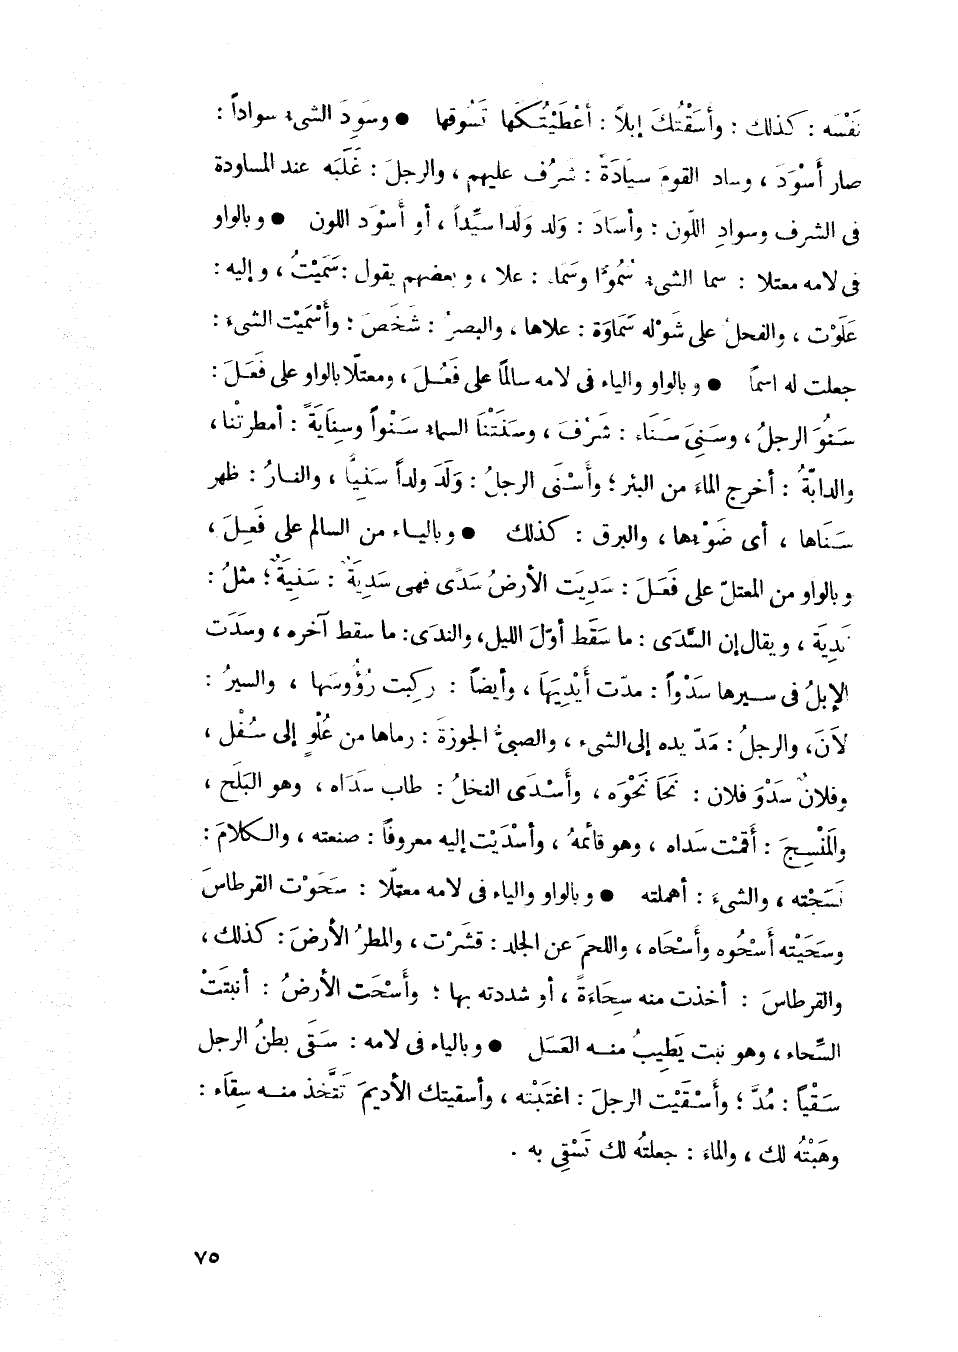 نَفْسَه : كذلك : وأَسَقْتُكَ إبلاً : أعْطَيْتُكَها تَسُوقها ● وسَوِدَ الشىء سواداً :
صار أَسْوَدَ ، وساد القومَ سيَادَةً : شرُف عليهم ، والرجلَ : غَلَبَه عند المساودة
فى الشرف وسوادِ اللّون : وأسَادَ : وَلد وَلَدا سيِّداً ، أو أسْوَد اللون ● وبالواو
فى لامه معتلا : سما الشىء سُمُوًّا وسَماء : علا ، وبعضهم يقول : سَمَيْتُ ، وإليه :
عَلَوْت ، والفحلُ على شَوْله سَمَاوَة : علاها ، والبصرُ : شَخَصَ ؛ وأَسْمَيْت الشىءَ :
جعلت له اسمًا ● وبالواو والياء فى لامه سالمًا على فَعُلَ ، ومعتلّا بالواو على فَعَلَ :
سَنُوَ الرجلُ ، وسَنِىَ سَنَاء : شَرُفَ ، وسَنَتْنَا السماء سَنْواً وسِنَايَةً : أمطرتْنا ،
والدابّةُ : أخرج الماءَ من البئر ؛ وأَسْنَى الرجلُ : وَلَدَ ولداً سَنِيًّا ، والنارُ : ظهر
سَنَاها ، أى ضَوْءها ، والبرق : كذلك ● وبالياء من السالم على فَعِلَ ،
وبالواو من المعتلّ على فَعَلَ : سَدِيَت الأرضُ سَدًى فهى سَدِيَةٌ : سَنِيَةٌ ؛ مثلُ :
نَدِيَة ، ويقال إن السَّدَى : ما سَقَط أوّلَ الليل ، والندَى : ما سقط آخره ، وسَدَت
الإبلُ فى سيرها سَدْواً : مدّت أَيْدِيَهَا ، وأيضاً : ركِبت رُؤُوسَها ، والسيرُ :
لاَنَ ، والرجلُ : مَدّ يده إلى الشىء ، والصبىُّ الجوزةَ : رماها من عُلْوٍ إلى سُفْل ،
وفلانٌ سَدْوَ فلان : نَحَا نَحْوَه ، وأَسْدَى النخلُ : طاب سَدَاه ، وهو البَلَح ،
والمَنْسِجَ : أقمْت سَداه ، وهو قائمهُ ، وأسْدَيْت إليه معروفاً : صنعته ، والكلامَ :
نَسَجْته ، والشىءَ : أهملته ● وبالواو والياء فى لامه معتلّا : سَحَوْت القرطاسَ
وسَحَيْته أسْحُوه وأَسْحَاه ، واللحمَ عن الجلد : قشَرْت ، والمطرُ الأرضَ : كذلك ،
والقرطاسَ : أخذت منه سِحَاءَةً ، أو شددته بها ؛ وأَسْحَت الأرضُ : أنبتَتْ
السِّحاء ، وهو نبت يَطِيبُ منه العَسَل ● وبالياء فى لامه : سَقَى بطنُ الرجل
سَقْياً : مُدَّ ؛ وأَسْقَيْت الرجلَ : اغتَبْته ، وأسقيتك الأديمَ تَتَّخذ منه سِقَاء :
وهَبْتُه لك ، والماءَ : جعلتُه لك تَسْقِى به .
٧٥